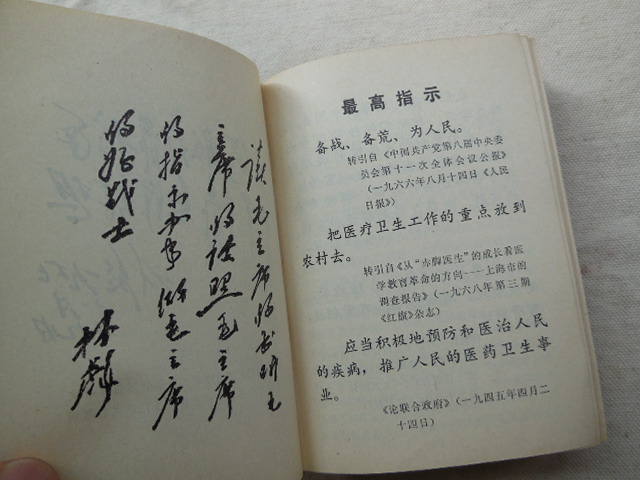 读毛主席的书听毛
主席的话照毛主席
的指示办事做毛主席
的好战士
林彪
最高指示
备战、备荒、为人民。
转引自《中国共产党第八届中央委
员会第十一次全体会议公报》
(一九六六年八月十四日《人民
日报》)
把医疗卫生工作的重点放到
农村去。
转引自《从“赤脚医生”的成长看医
学教育革命的方向——上海市的
调查报告》(一九六八年第三期
《红旗》杂志)
应当积极地预防和医治人民
的疾病，推广人民的医药卫生事
业。
《论联合政府》(一九四五年四月二
十四日)